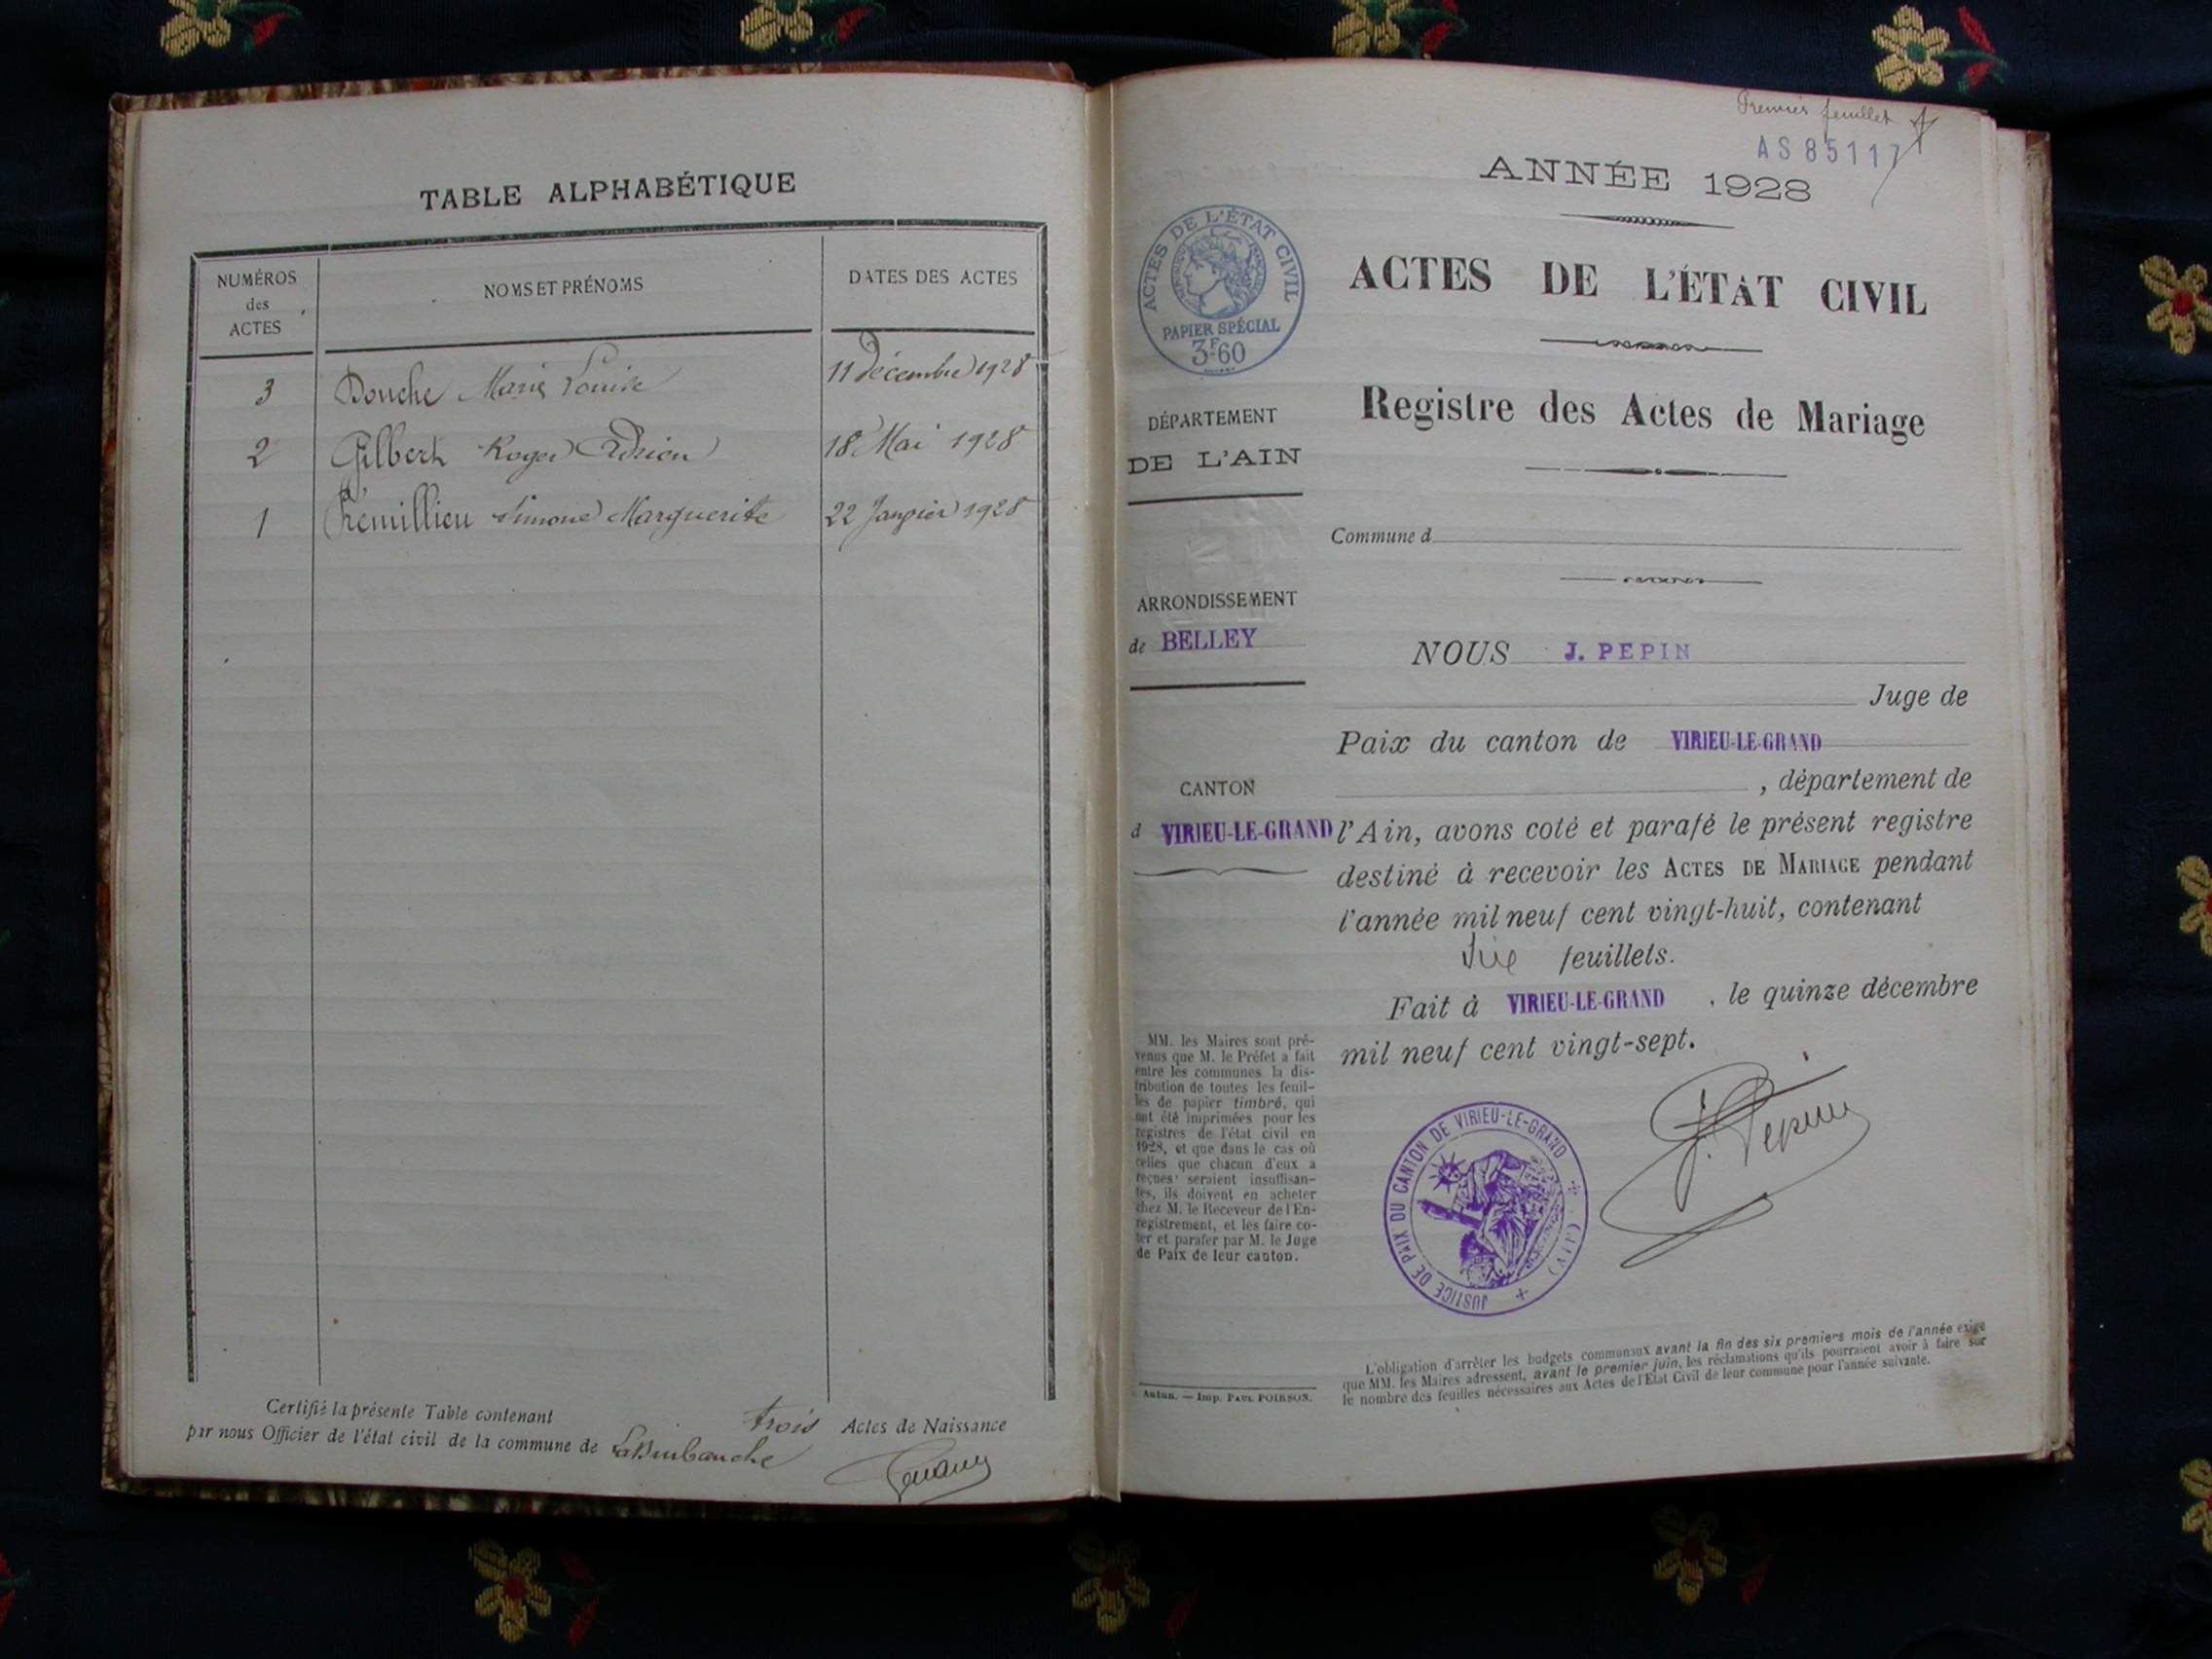 TABLE ALPHABÉTIQUE
NUMÉROS
des
ACTES
NOMS ET PRÉNOMS
DATES DES ACTES
3 Douche Marie Louise 11 Décembre 1928
2 Gilbert Roger Adrien 18 Mai 1928
1 Trémillieu Simone Marguerite 22 Janvier 1928
Certifié la présente Table contenant trois Actes de Naissance
par nous Officier de l'état civil de la commune de La Burbanche
Premier feuillet
AS 85117
ANNÉE 1928
ACTES DE L'ÉTAT CIVIL
PAPIER SPÉCIAL
3F60
ACTES DE L'ÉTAT CIVIL
Registre des Actes de Mariage
DÉPARTEMENT
DE L'AIN
Commune d
ARRONDISSEMENT
de BELLEY
NOUS J. PEPIN
Juge de
Paix du canton de VIRIEU-LE-GRAND
, département de
CANTON
d VIRIEU-LE-GRAND
l'Ain, avons coté et parafé le présent registre
destiné à recevoir les ACTES DE MARIAGE pendant
l'année mil neuf cent vingt-huit, contenant
six feuillets.
Fait à VIRIEU-LE-GRAND , le quinze décembre
mil neuf cent vingt-sept.
MM. les Maires sont pré-
venus que M. le Préfet a fait
entre les communes la dis-
tribution de toutes les feuil-
les de papier timbré, qui
ont été imprimées pour les
registres de l'état civil en
1928, et que dans le cas où
celles que chacun d'eux a
reçues seraient insuffisan-
tes, ils doivent en acheter
chez M. le Receveur de l'En-
registrement, et les faire co-
ter et parafer par M. le Juge
de Paix de leur canton.
JUSTICE DE PAIX DU CANTON DE VIRIEU-LE-GRAND
(AIN)
J. Pepin
Autun. — Imp. PAUL POIRSON.
L'obligation d'arrêter les budgets communaux avant la fin des six premiers mois de l'année exige
que MM. les Maires adressent, avant le premier juin, les réclamations qu'ils pourraient avoir à faire sur
le nombre des feuilles nécessaires aux Actes de l'Etat Civil de leur commune pour l'année suivante.